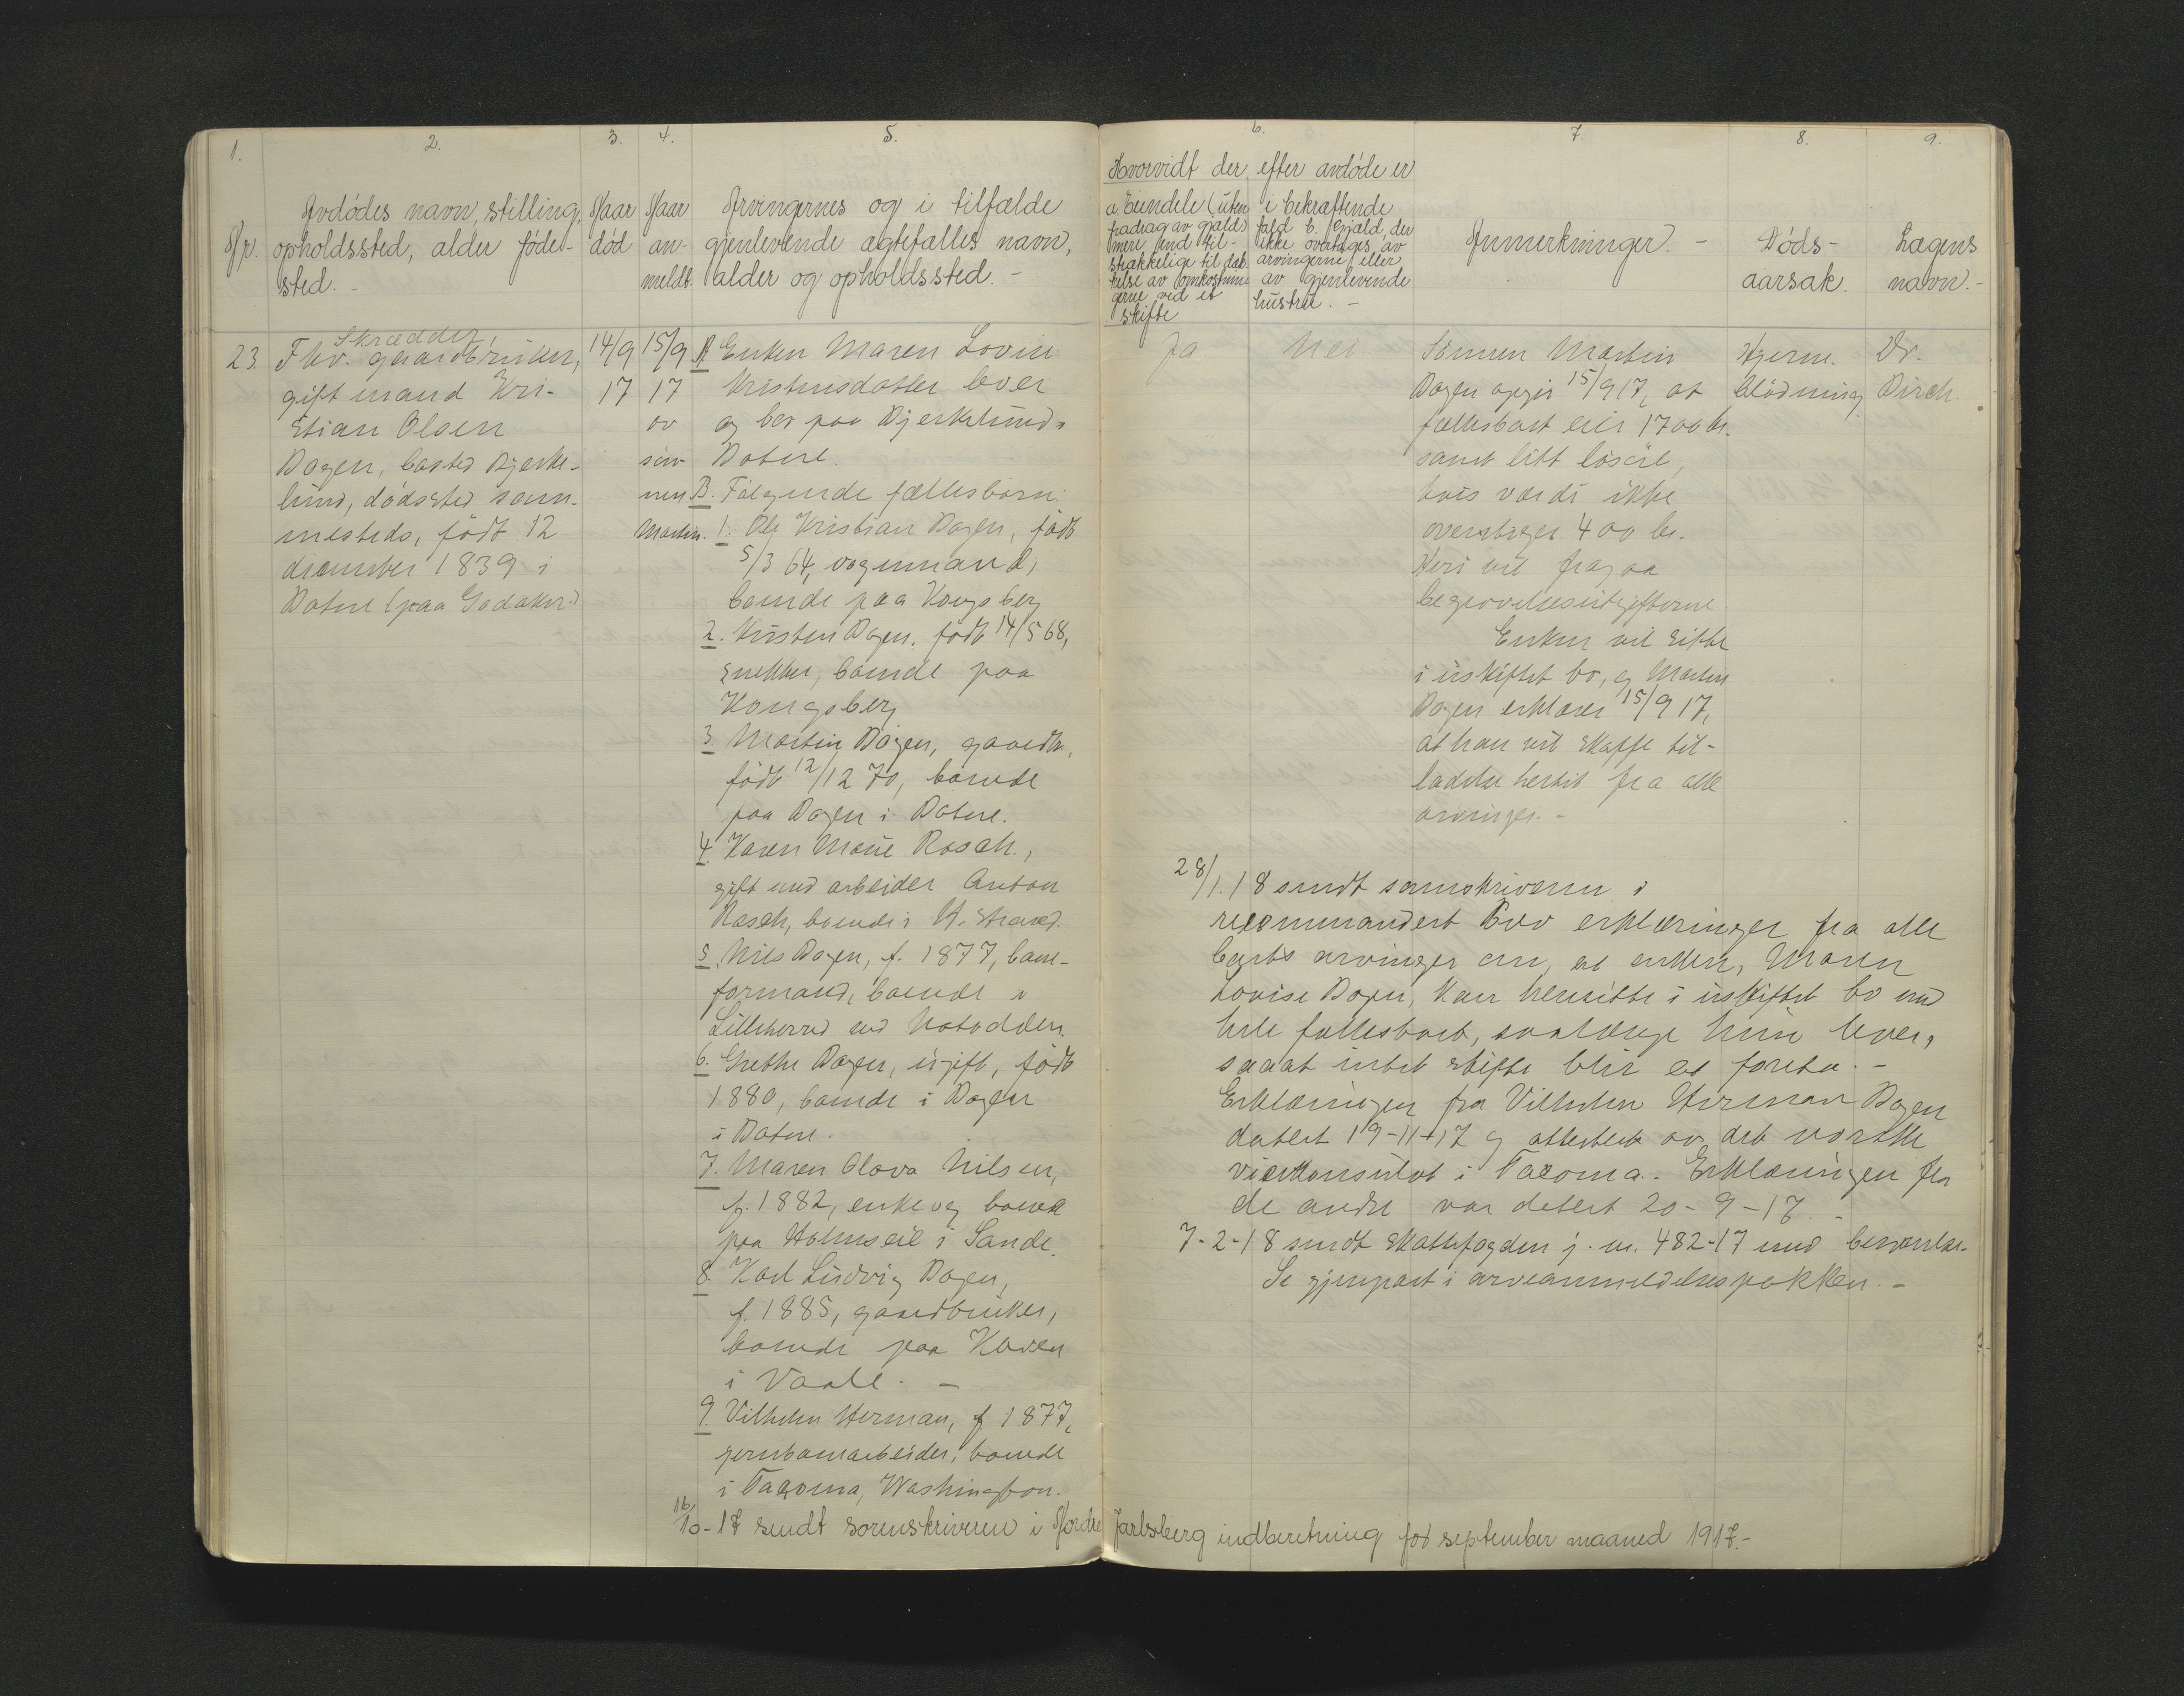 1.
2.
3.
4.
5.
Nr.
Avdödes navn, stilling,
opholdssted, alder föde-
sted. -
Naar
död
Naar
an-
meldt.
Arvingernes og i tilfælde
gjenlevende ægtefælles navn,
alder og opholdssted. -
23.
Skrædder,
Fhv. gaardbruker,
gift mand Kri-
stian Olsen
Bagen, bosted Bjerke-
lund, dödssted sam-
mesteds, född 12
december 1839 i
Botne (paa Godaker)
14/9
17
15/9
17
av
søn-
nen
Martin.
A Enken Maren Lovise
Kristensdatter lever
og bor paa Bjerkelund,
Botne.
B. Fölgende fællesbarn:
1. Ole Kristian Bagen, född
5/3 64, vognmand,
boende paa Kongsberg
2. Kristen Bagen, född 14/5 68,
snekker, boende paa
Kongsberg
3. Martin Bagen, gaardbr.,
född 12/12 70, boende
paa Bagen i Botne.
4. Karen Marie Rasch,
gift med arbeider Anton
Rasch, boende i H. strand.
5. Nils Bagen, f. 1877, bane-
formand, boende i
Lilleherred ved Notodden.
6. Grethe Bagen, ugift, född
1880, boende i Bagen
i Botne.
7. Maren Olava Nilsen,
f. 1882, enke og boende
paa Holmseie i Sande.
8. Karl Ludvig Bagen,
f. 1885, gaardbruker,
boende paa
i Vaale. -
9. Vilhelm Herman, f 1877,
jernbanearbeider, boende
i Tacoma, Washington.
16/10-17 sendt sorenskriveren i Nordre Jarlsberg indberetning for september maaned 1917.-
6.
7.
8.
9.
Hvorvidt der efter avdöde er
a. Eiendele (uten
fradrag av gjæld)
mere end til-
strækkelige til dæk-
kelse av omkostnin-
gerne ved et
skifte
i bekræftende
fald b. Gjæld, der
ikke overtages av
arvingerne eller
av gjenlevende
hustru. -
Anmerkninger. -
Döds-
aarsak.
Lægens
navn. -
Ja
Nei
Sönnen Martin
Bagen opgir 15/9 17, at
fællesboet eier 1700 kr.
samt litt lösöre,
hvis værdi ikke
overstiger 400 kr.
Heri vil fragaa
begravelsesutgifterne.
Enken vil sitte
i uskiftet bo, og Martin
Bagen erklærer 15/9 17,
at han vil skaffe til-
ladelse hertil fra alle
arvinger. -
Hjerne-
blödning
Dr.
Birch.
28/1.18 sendt sorenskriveren i
recommandert brev erklæringer fra alle
boets arvinger om, at enken, Maren
Lovise Bagen, kan hensitte i uskiftet bo med
hele fællesboet, saalænge hun lever,
saaat intet skifte blir at foreta. -
Erklæringen fra Vilhelm Herman Bagen
datert 19-11-17 og attestert av det norske
vicekonsulat i Tacoma. Erklæringen fra
de andre var datert 20-9-17. -
7-2-18 sendt skattefogden j. nr. 482-17 med
Se gjenpart i arveanmeldelsespakken. -